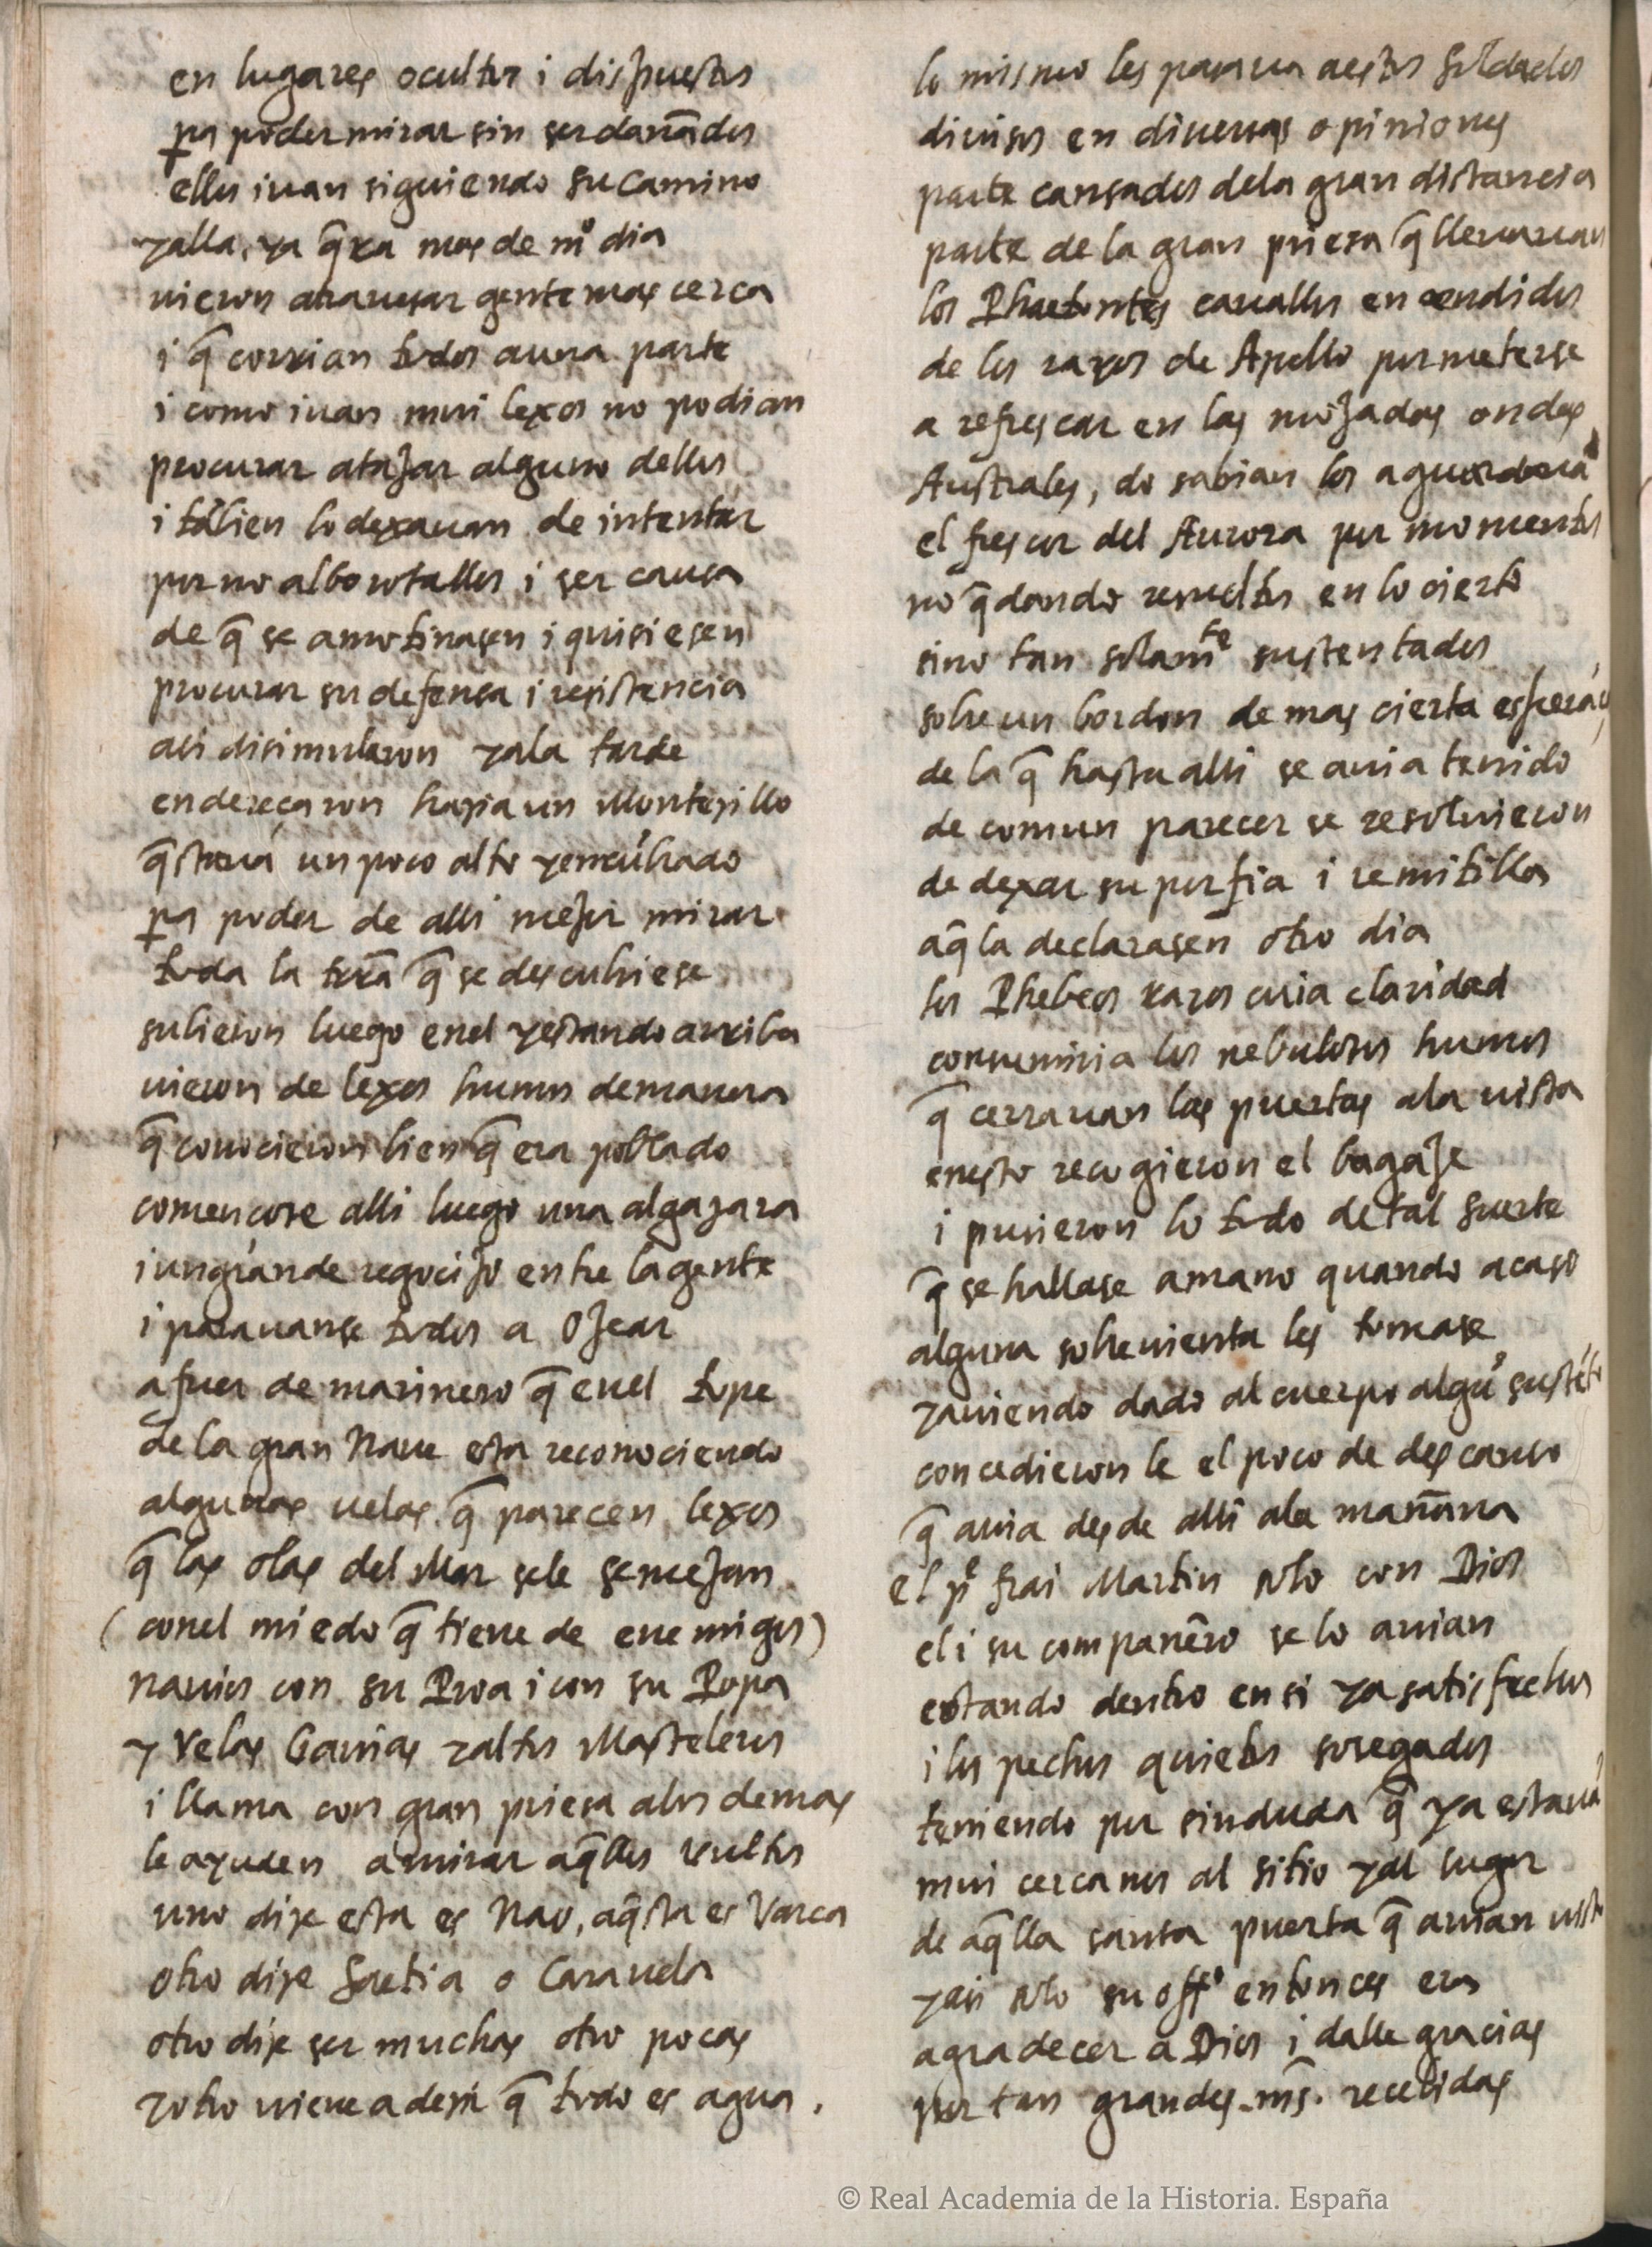 en lugares ocultos i dispuestos
pa poder mirar sin ser danãdos
ellos iuan siguiendo su camino
yalla, ya q̃ era mas de mº dia
uieron atrauesar gente mas cerca
i q̃ corrian todos a una parte
i como iuan mui lexos no podian
procurar atajar alguno dellos
i tãbien lo dexauan de intentar
por no alborotallos i ser causa
de q̃ se amotinasen i quisiesen
procurar su defensa i resistencia
asi disimularon yala tarde
endereçaron hazia un Montesillo
q̃staua un poco alto yencũbrado
pa poder de alli mejor mirar
toda la trã q̃ se descubriese
subieron luego enel yestando arriba
uieron de lexos humos de manera
q̃ conocieron bien q̃ era poblado
començose alli luego una algazara
i un grande regocijo entre la gente
i parauanse todos a Ojear
a fuer de marinero q̃ enel tope
de la gran Naue esta reconociendo
algunas uelas q̃ parecen lexos
q̃ las olas del Mar sele semejan
(conel miedo q̃ tiene de enemigos)
nauios con su Proa i con su Popa
y Velas Gauias yaltos Masteleros
i llama con gran priesa alos demas
le ayuden a mirar aq̃llos vultos
uno dize esta es Nao, aq̃sta es Varca
otro dize Saetia o Carauela
otro dize ser muchas otro pocas
yotro uiene a dezir q̃ todo es agua.
lo mismo les pasaua aestos soldados
diuisos en diuersas opiniones
parte cansados dela gran distancia
parte de la gran priesa q̃ lleuauan
los Phaetontes cauallos encendidos
de los rayos de Apollo por meterse
a refrescar en las mojadas ondas
Australes, do sabian los aguardaua
el frescor del Aurora por momentos
no q̃dando resueltos en lo cierto
sino tan solamte sustentados
sobre un bordon de mas cierta esperãça
de la q̃ hasta alli se auia tenido
de comun parecer se resoluieron
de dexar su porfia i remitilla
aq̃ la declarasen otro dia
los Phebeos rayos cuia claridad
consumiria los nebulosos humos
q̃ cerrauan las puertas ala uista
enesto recogieron el bagaje
i pusieron lo todo de tal suerte
q̃ se hallase a mano quando acaso
alguna sobreuienta les tomase
yauiendo dado al cuerpo algũ sustẽto
concedieron le el poco de descanso
q̃ auia desde alli ala mañana
el pe frai Martin solo con Dios
el i su companẽro se lo auian
estando dentro en si ya satisfechos
i los pechos quietos sosegados
teniendo por sin duda q̃ ya estauã
mui cercanos al sitio yal lugar
de aq̃lla santa puerta q̃ auian uisto
yasi solo su offº entonces era
agradecer a Dios i dalle gracias
por tan grandes mrs. recebidas
© Real Academia de la Historia. España